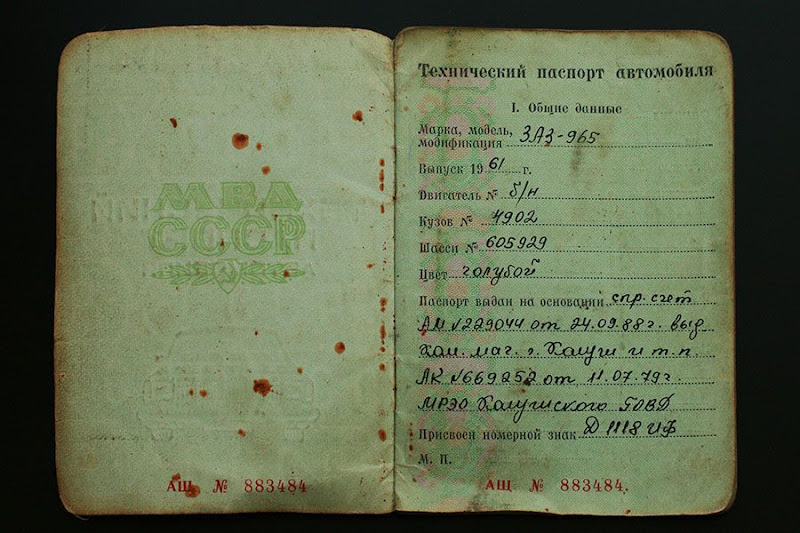 МВД
СССР
АЩ № 883484
Технический паспорт автомобиля
I. Общие данные
Марка, модель,
модификация ЗАЗ-965
Выпуск 1961 г.
Двигатель № б/н
Кузов № 4902
Шасси № 605929
Цвет голубой
Паспорт выдан на основании спр. счет
АМ №229044 от 24.09.88г. выд
маг. г. и т.п.
АК №669252 от 11.07.79г.
МРЭО Калушского ГОВД
Присвоен номерной знак Д 1118 ИФ
М. П.
АЩ № 883484.